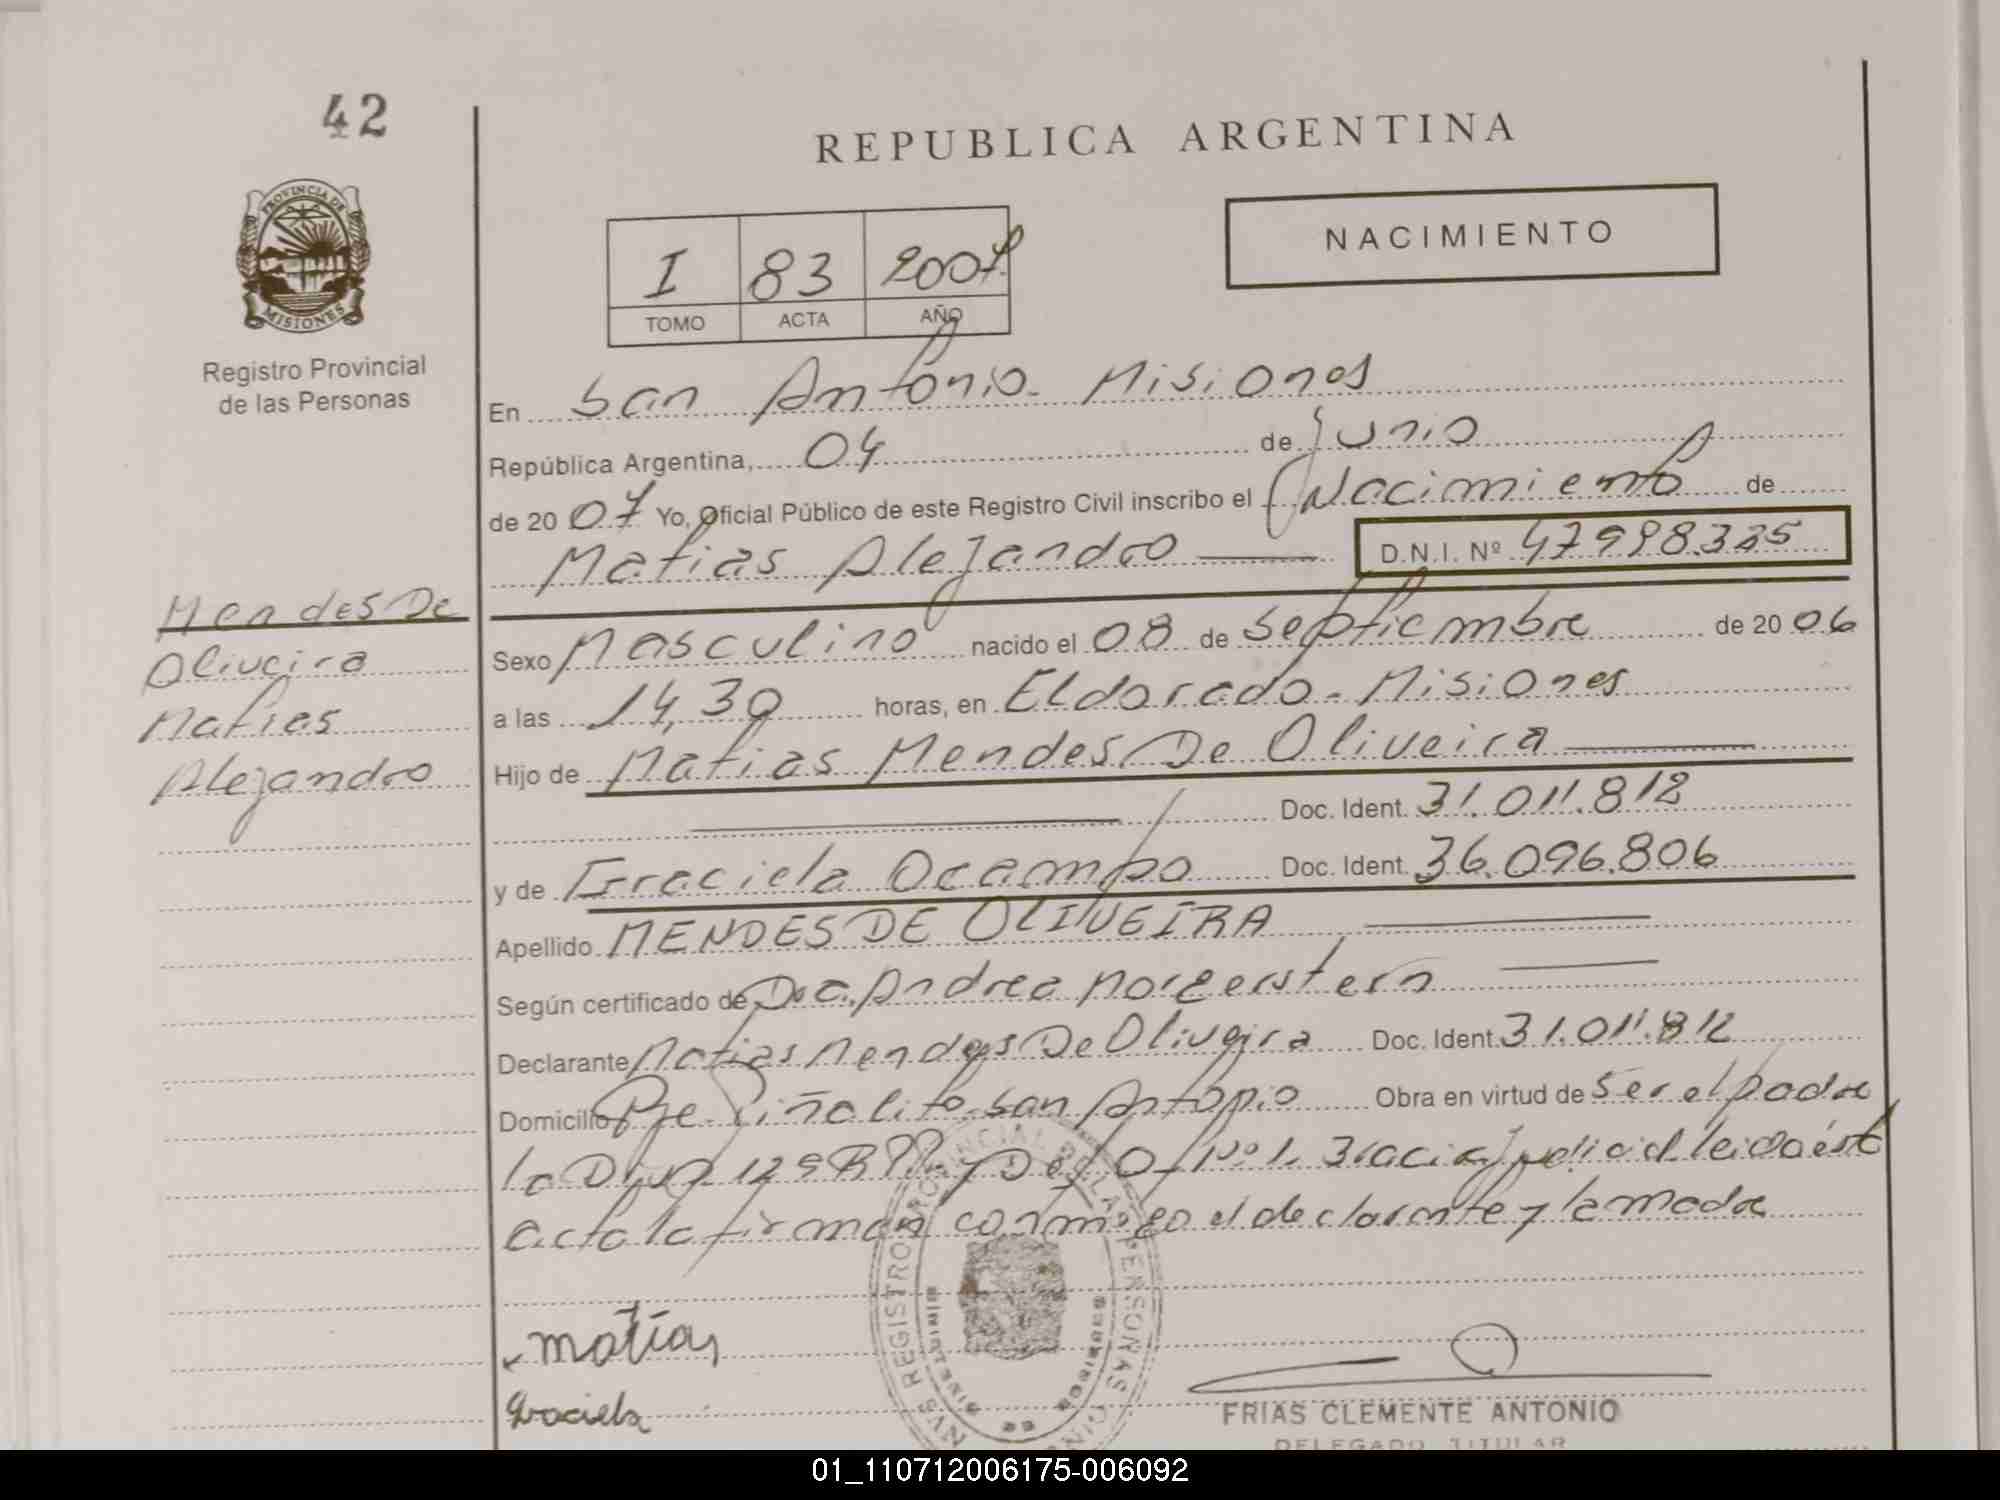 42
REPUBLICA ARGENTINA
PROVINCIA DE
MISIONES
Registro Provincial
de las Personas
NACIMIENTO
I 83 2007
TOMO ACTA AÑO
En San Antonio - Misiones
República Argentina, 04 de Junio
de 2007 Yo, Oficial Público de este Registro Civil inscribo el Nacimiento de
Matias Alejandro D.N.I. Nº 47998325
Mendes De
Oliveira
Matias
Alejandro
Sexo Masculino nacido el 08 de Septiembre de 2006
a las 14,30 horas, en Eldorado - Misiones
Hijo de Matias Mendes De Oliveira
Doc. Ident. 31.011.812
y de Graciela Ocampo Doc. Ident. 36.096.806
Apellido MENDES DE OLIVEIRA
Según certificado de Dra. Andrea Morgenstern
Declarante Matias Mendes De Oliveira Doc. Ident 31.011.812
Domicilio Pje. Piñalito - San Antonio Obra en virtud de Ser el padre
judicial leida ésta
acta la firman conmigo el declarante y la madre
REGISTRO PROVINCIAL DE LAS PERSONAS
matías
Graciela
FRIAS CLEMENTE ANTONIO
DELEGADO TITULAR
01_110712006175-006092